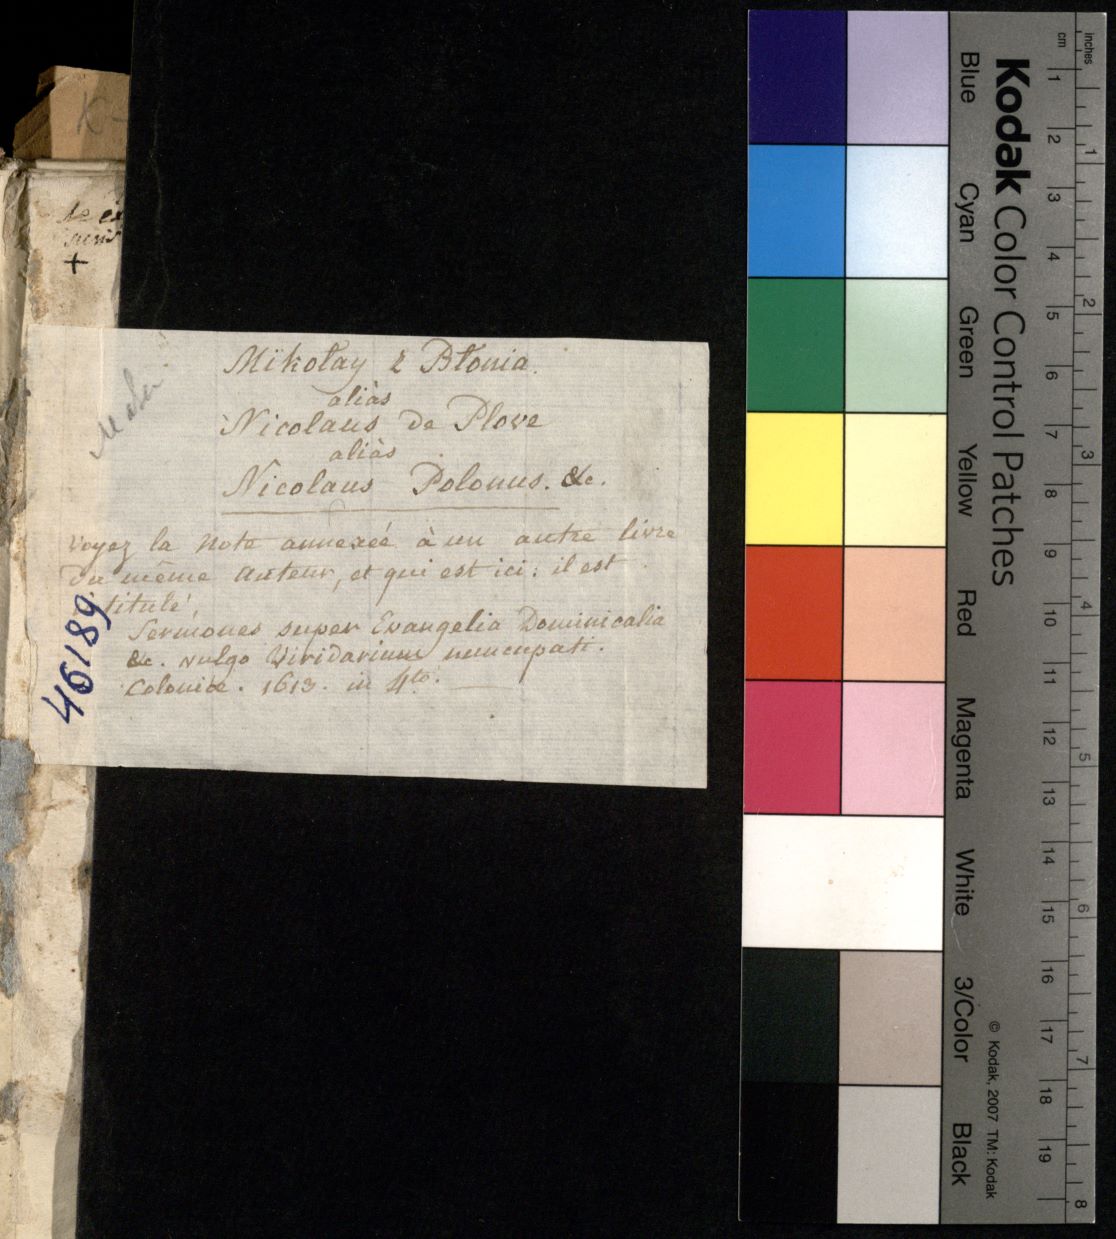 K-
+
Mikołay z Błonia.
aliàs
Nicolaus de Plove
aliàs
Nicolaus Polonus. &c.
voyez la Note annexéé à un autre livre
du même Auteur, et qui est ici: il est
titulé,
Sermones super Evangelia Dominicalia
&c. vulgo Viridarium nuncupati.
Coloniæ. 1613. in 4to.
46189
Kodak Color Control Patches
Blue Cyan Green Yellow Red Magenta White 3/Color Black
© Kodak, 2007 TM: Kodak
cm 1 2 3 4 5 6 7 8 9 10 11 12 13 14 15 16 17 18 19
inches 1 2 3 4 5 6 7 8